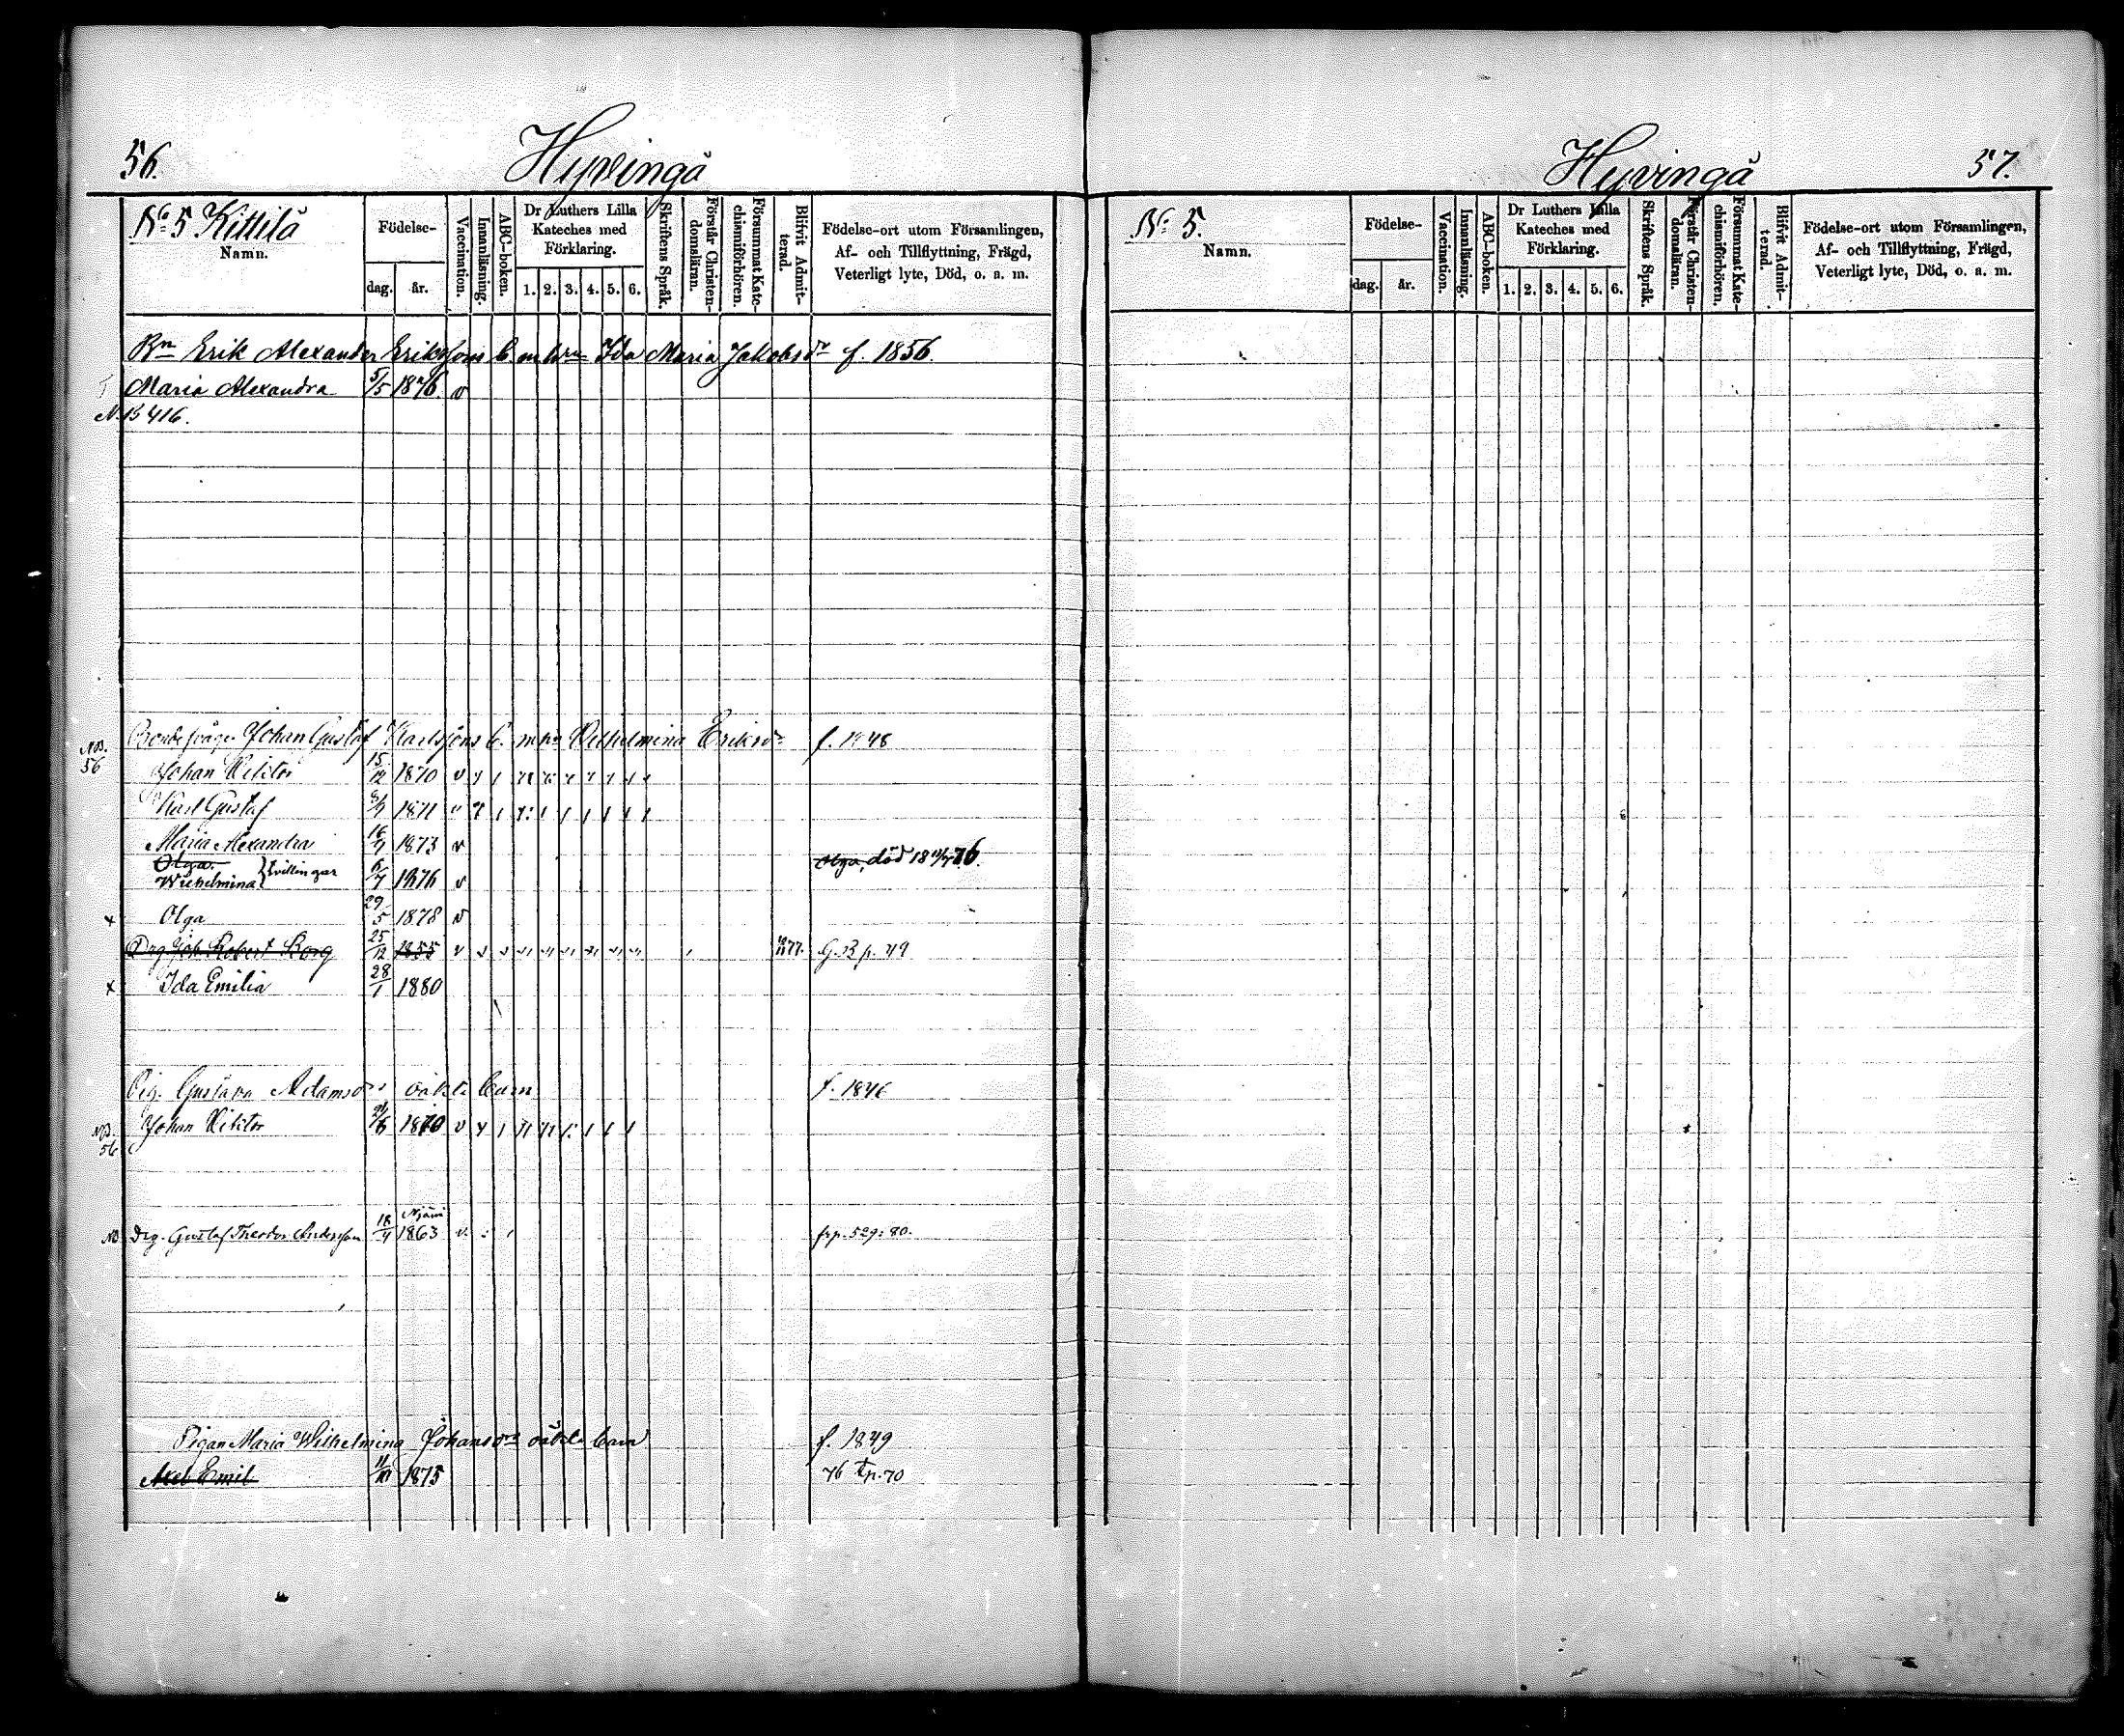 56.
Hyvingä
No 5 Kittilä
Namn.
Födelse-
dag. år.
Vaccination.
Innanläsning.
ABC-boken.
Dr Luthers Lilla
Kateches med
Förklaring.
1. 2. 3. 4. 5. 6.
Skriftens Språk.
Förstår Christen-
domsläran.
Försummat Kate-
chismiförhören.
Blifvit Admit-
terad.
Födelse-ort utom Församlingen,
Af- och Tillflyttning, Frägd,
Veterligt lyte, Död, o. a. m.
Bn Erik Alexander Erikssons b. m hn Ida Maria Jakobsdr f. 1856
Maria Alexandra 5/5 1876. v
N. B 416.
Johan Gustaf Karlssons b. m hn Vilhelmina Eriksdr f. 1848
NB. 56
Johan Viktor 15/12 1870 v
Karl Gustaf 1871 v
Maria Alexandra 16/7 1873 v
Olga
Wilhelmina } tvillingar 6/7 1876 v
Olga, död 76.
x Olga 29/5 1878 v
Drg Joh. Robert Borg 25/12 1855 77. G. B p. 49
x Ida Emilia 28/1 1880
Pig. Gustava Adamsdrs oäkta barn f. 1846
NB. 56
Johan Viktor 1870 v
NB Drg. Gustaf Theodor Andersson 18/4 1863 v. frp. 529: 80.
Pigan Maria Wilhelmina Johansdrs oäkta barn f. 1849
Axel Emil 11/10 1875 76 t p. 70
Hyvingä
57.
No 5.
Namn.
Födelse-
dag. år.
Vaccination.
Innanläsning.
ABC-boken.
Dr Luthers Lilla
Kateches med
Förklaring.
1. 2. 3. 4. 5. 6.
Skriftens Språk.
Förstår Christen-
domsläran.
Försummat Kate-
chismiförhören.
Blifvit Admit-
terad.
Födelse-ort utom Församlingen,
Af- och Tillflyttning, Frägd,
Veterligt lyte, Död, o. a. m.